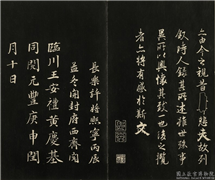 亦由今之視昔悲夫故列
敘時人錄其所述雖世殊事
異所以興懷其致一也後之攬
者亦將有感於斯文
長樂許將熙寧丙辰
孟冬開封府西齋閱
臨川王安禮黃慶基
同閱元豐庚申閏
月十日